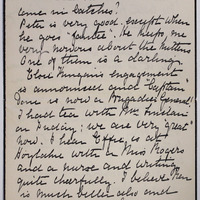 come in batches?
Peter is very good, except when
he goes He keeps me
very nervous about the kittens
One of them is a darling.
Elsie engagement
is announced and Captain
is now a Brigadier General!
I had tea with Mrs Sinclair
on Friday; we are very "great"
now. I hear Effie is at
with a Miss Rogers
and a nurse and writing
quite cheerfully. I believe
is much better also and